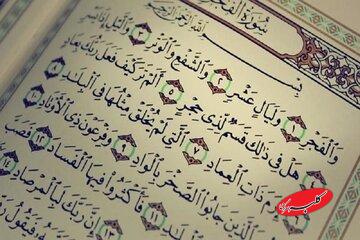 سُورَةُ الْفَجْرِ
بِسْمِ
وَالْفَجْرِ ۝١ وَلَيَالٍ عَشْرٍ ۝٢ وَالشَّفْعِ وَالْوَتْرِ ۝٣ وَاللَّيْلِ إِذَا يَسْرِ
هَلْ فِي ذَٰلِكَ قَسَمٌ لِّذِي حِجْرٍ ۝٥ أَلَمْ تَرَ كَيْفَ فَعَلَ رَبُّكَ بِعَادٍ
ذَاتِ الْعِمَادِ ۝٧ الَّتِي لَمْ يُخْلَقْ مِثْلُهَا فِي الْبِلَادِ ۝٨
الَّذِينَ جَابُوا الصَّخْرَ بِالْوَادِ ۝٩ وَفِرْعَوْنَ ذِي الْأَوْتَادِ
فَأَكْثَرُوا فِيهَا الْفَسَادَ ۝١٢ فَصَبَّ
إِنَّ رَبَّكَ لَبِالْمِرْصَادِ
کلبه